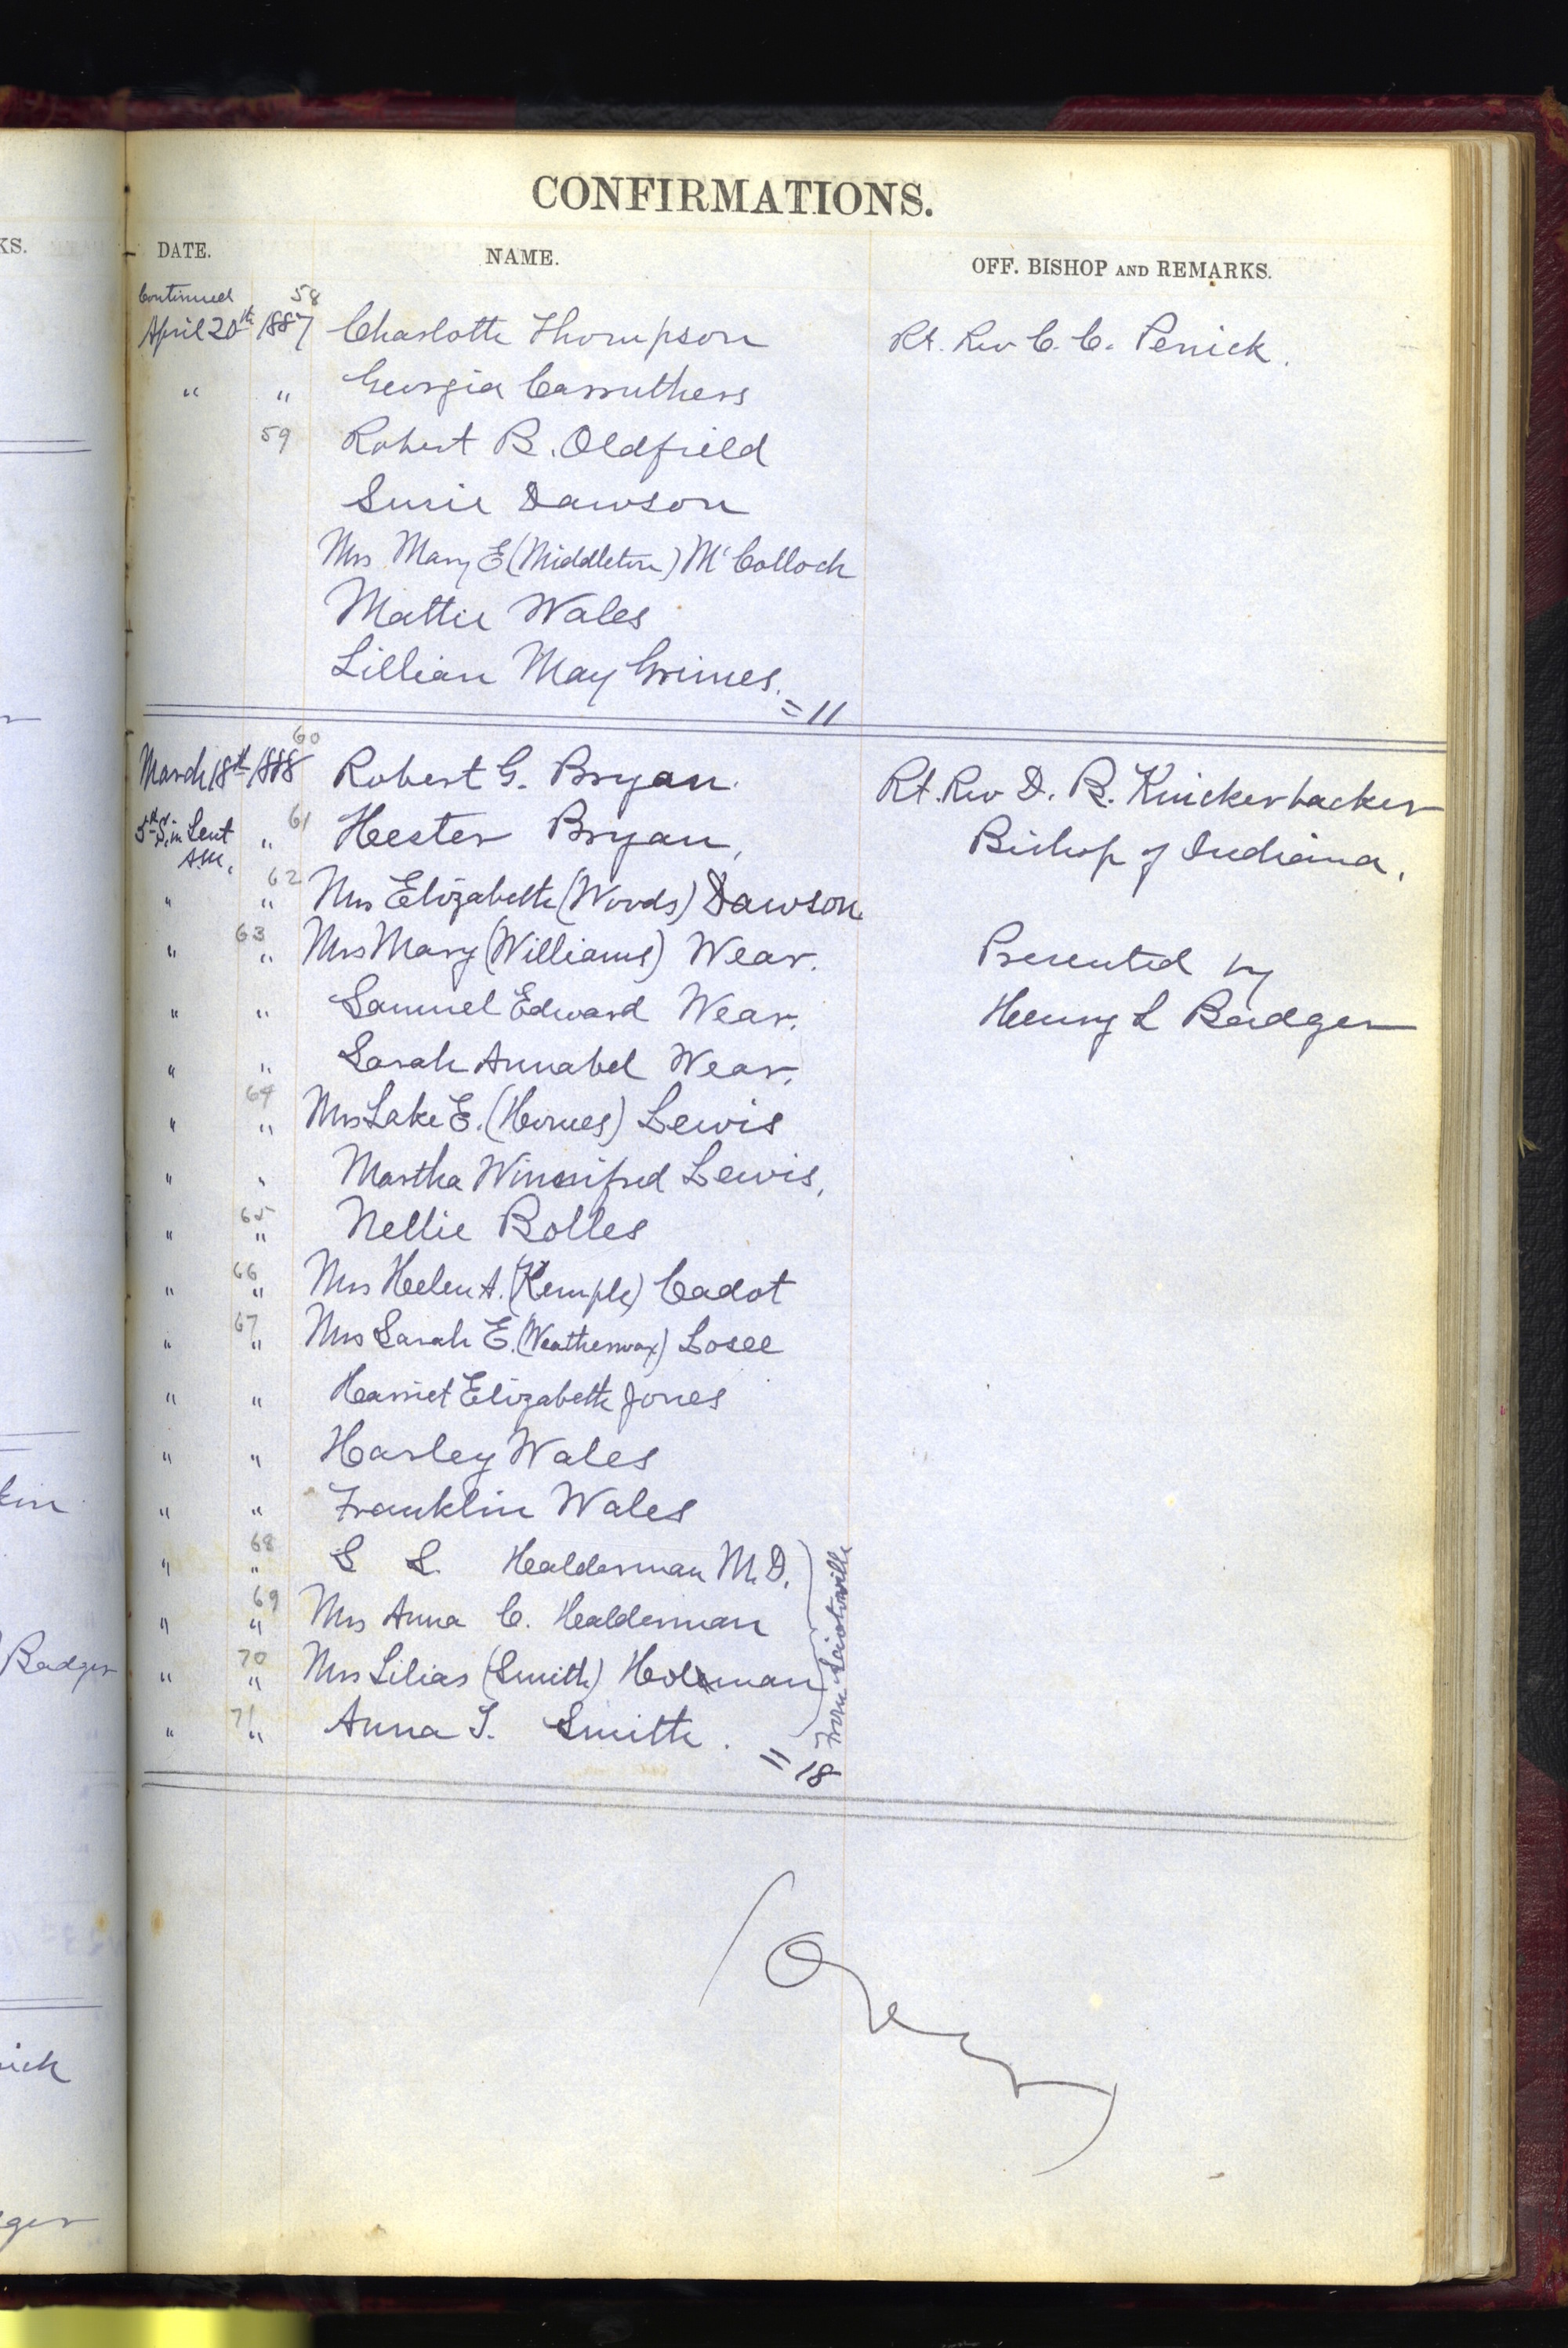 CONFIRMATIONS.
KS.
DATE. NAME. OFF. BISHOP AND REMARKS.
Continued 58
April 20th 1887 Charlotte Thompson Rt. Rev C. C. Penick.
" " Georgia Carruthers
59 Robert B. Oldfield
Susie Dawson
Mrs Mary E (Middleton) Mc Colloch
Mattie Wales
Lillian May Grimes.
= 11
60
March 18th 1888 Robert G. Bryan. Rt. Rev D. B. Knickerbacker
5th S. in Lent " 61 Hester Bryan, Bishop of Indiana,
A.M.
" 62 " Mrs Elizabeth (Woods) Dawson
" 63 " Mrs Mary (Williams) Wear. Presented by
" " Samuel Edward Wear. Henry L Badger
" " Sarah Annabel Wear.
" 64 " Mrs Lake E. (Homes) Lewis
" " Martha Winnifred Lewis,
" 65 " Nellie Bolles
" 66 " Mrs Helen A. (Kemple) Cadot
" 67 " Mrs Sarah E. (Weatherwax) Losee
" " Harriet Elizabeth Jones
" " Harley Wales
" " Franklin Wales
" 68 " S S. Halderman M.D.
" 69 " Mrs Anna C. Halderman
" 70 " Mrs Lilias (Smith) Holeman
" 71 " Anna T. Smith.
From Sciotoville
= 18
(Over)
kin
Badger
ick
ger